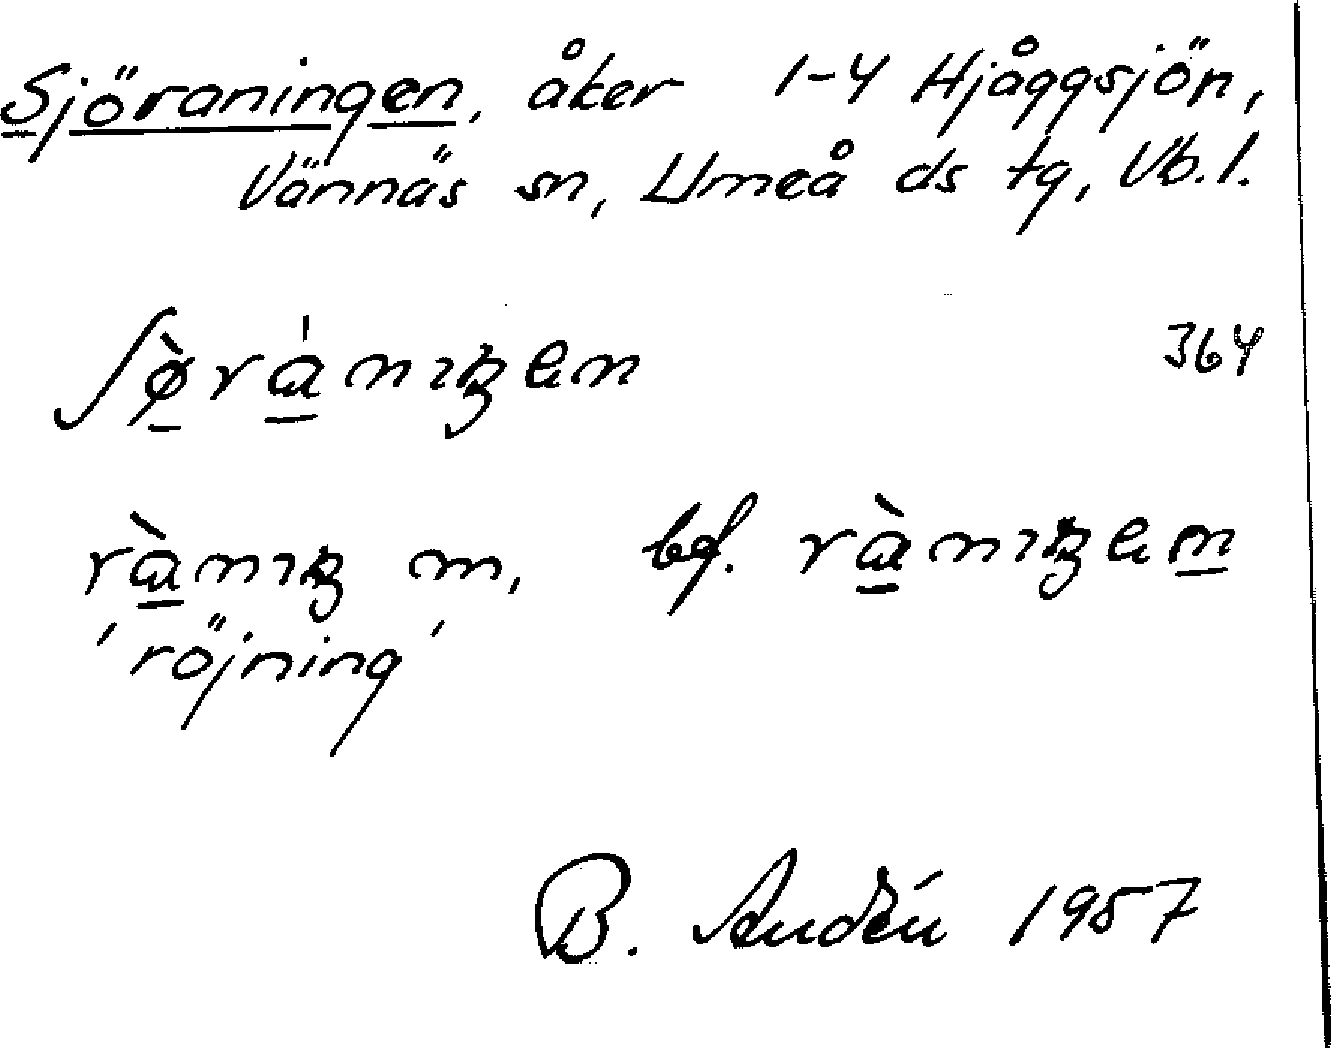 Sjöraningen, åker 1-4 Hjåggsjön,
Vännäs sn, Umeå ds tg, Vb. l.
ʃø̠̀ra̠̍nıꞑen 364
rà̠nıꞑ m, bf. rà̠nıꞑen̠
'röjning'
B. Audén 1957